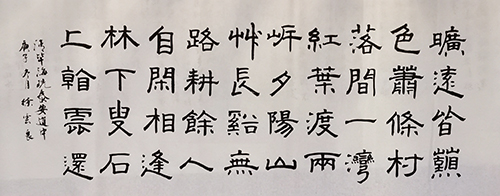 曠遠皆巔
色蕭條村
落間一灣
紅葉渡兩
岸夕陽山
艸長谿無
路耕餘人
自閑相逢
林下叟石
上翰雲還
清畢海珖泰安道中
庚子冬月徐雲良